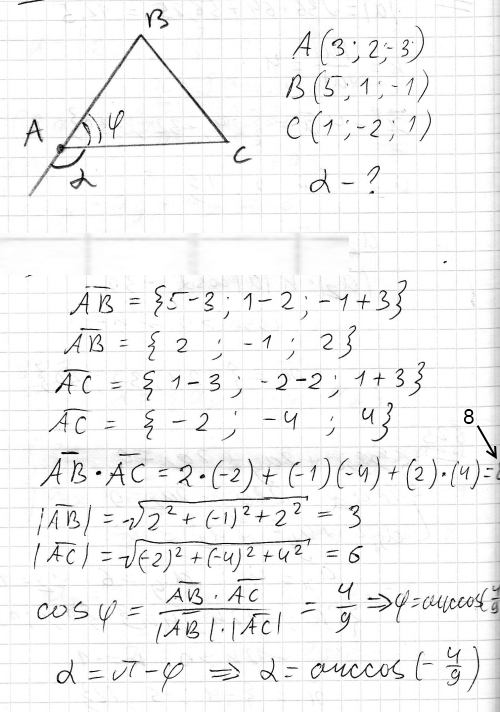 B
A(3; 2; -3)
B(5; 1; -1)
φ
A
C(1; -2; 1)
C
α
α - ?
AB = {5-3; 1-2; -1+3}
AB = {2; -1; 2}
AC = {1-3; -2-2; 1+3}
AC = {-2; -4; 4}
8
AB · AC = 2·(-2) + (-1)(-4) + (2)·(4) =
|AB| = √(2² + (-1)² + 2²) = 3
|AC| = √((-2)² + (-4)² + 4²) = 6
cos φ = AB · AC / |AB|·|AC| = 4/9 ⇒ φ = arccos(4/9
α = π - φ ⇒ α = arccos(-4/9)